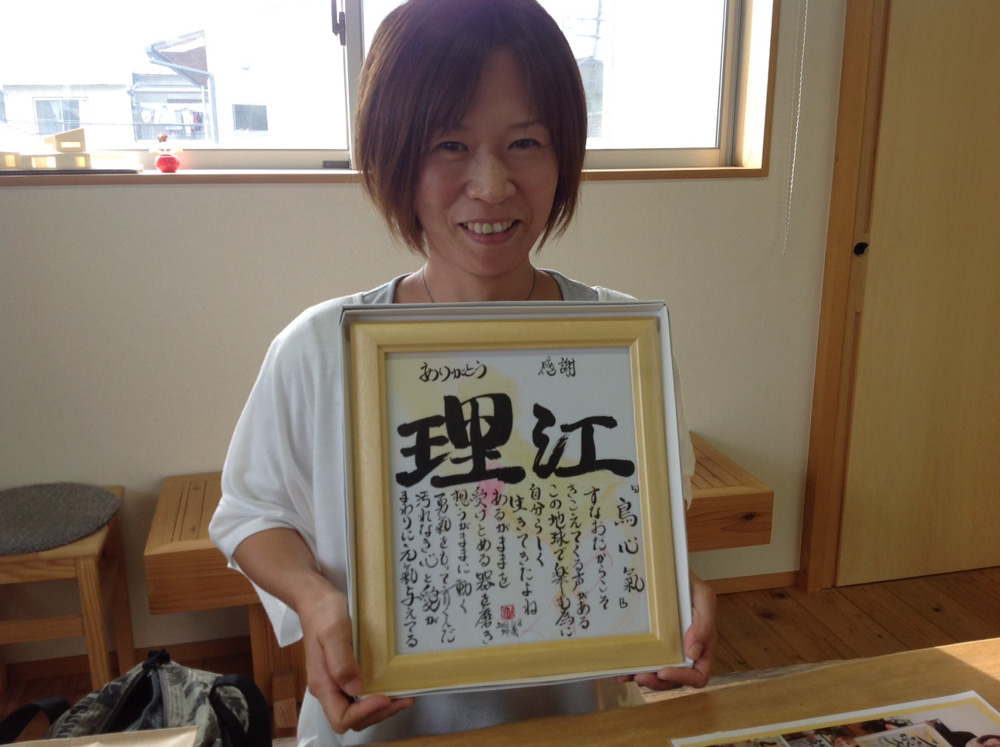 ありがとう 感謝
理江
『鳥心氣』
すなおだからこそ
きこえてくる声がある
この地球で楽しむ為に
自分らしく
生きてきたよね
あるがままを
受けとめる器を磨き
想うがままに動く
勇氣をもって育くんだ
汚れなき心と姿が
まわりに元氣与えてる